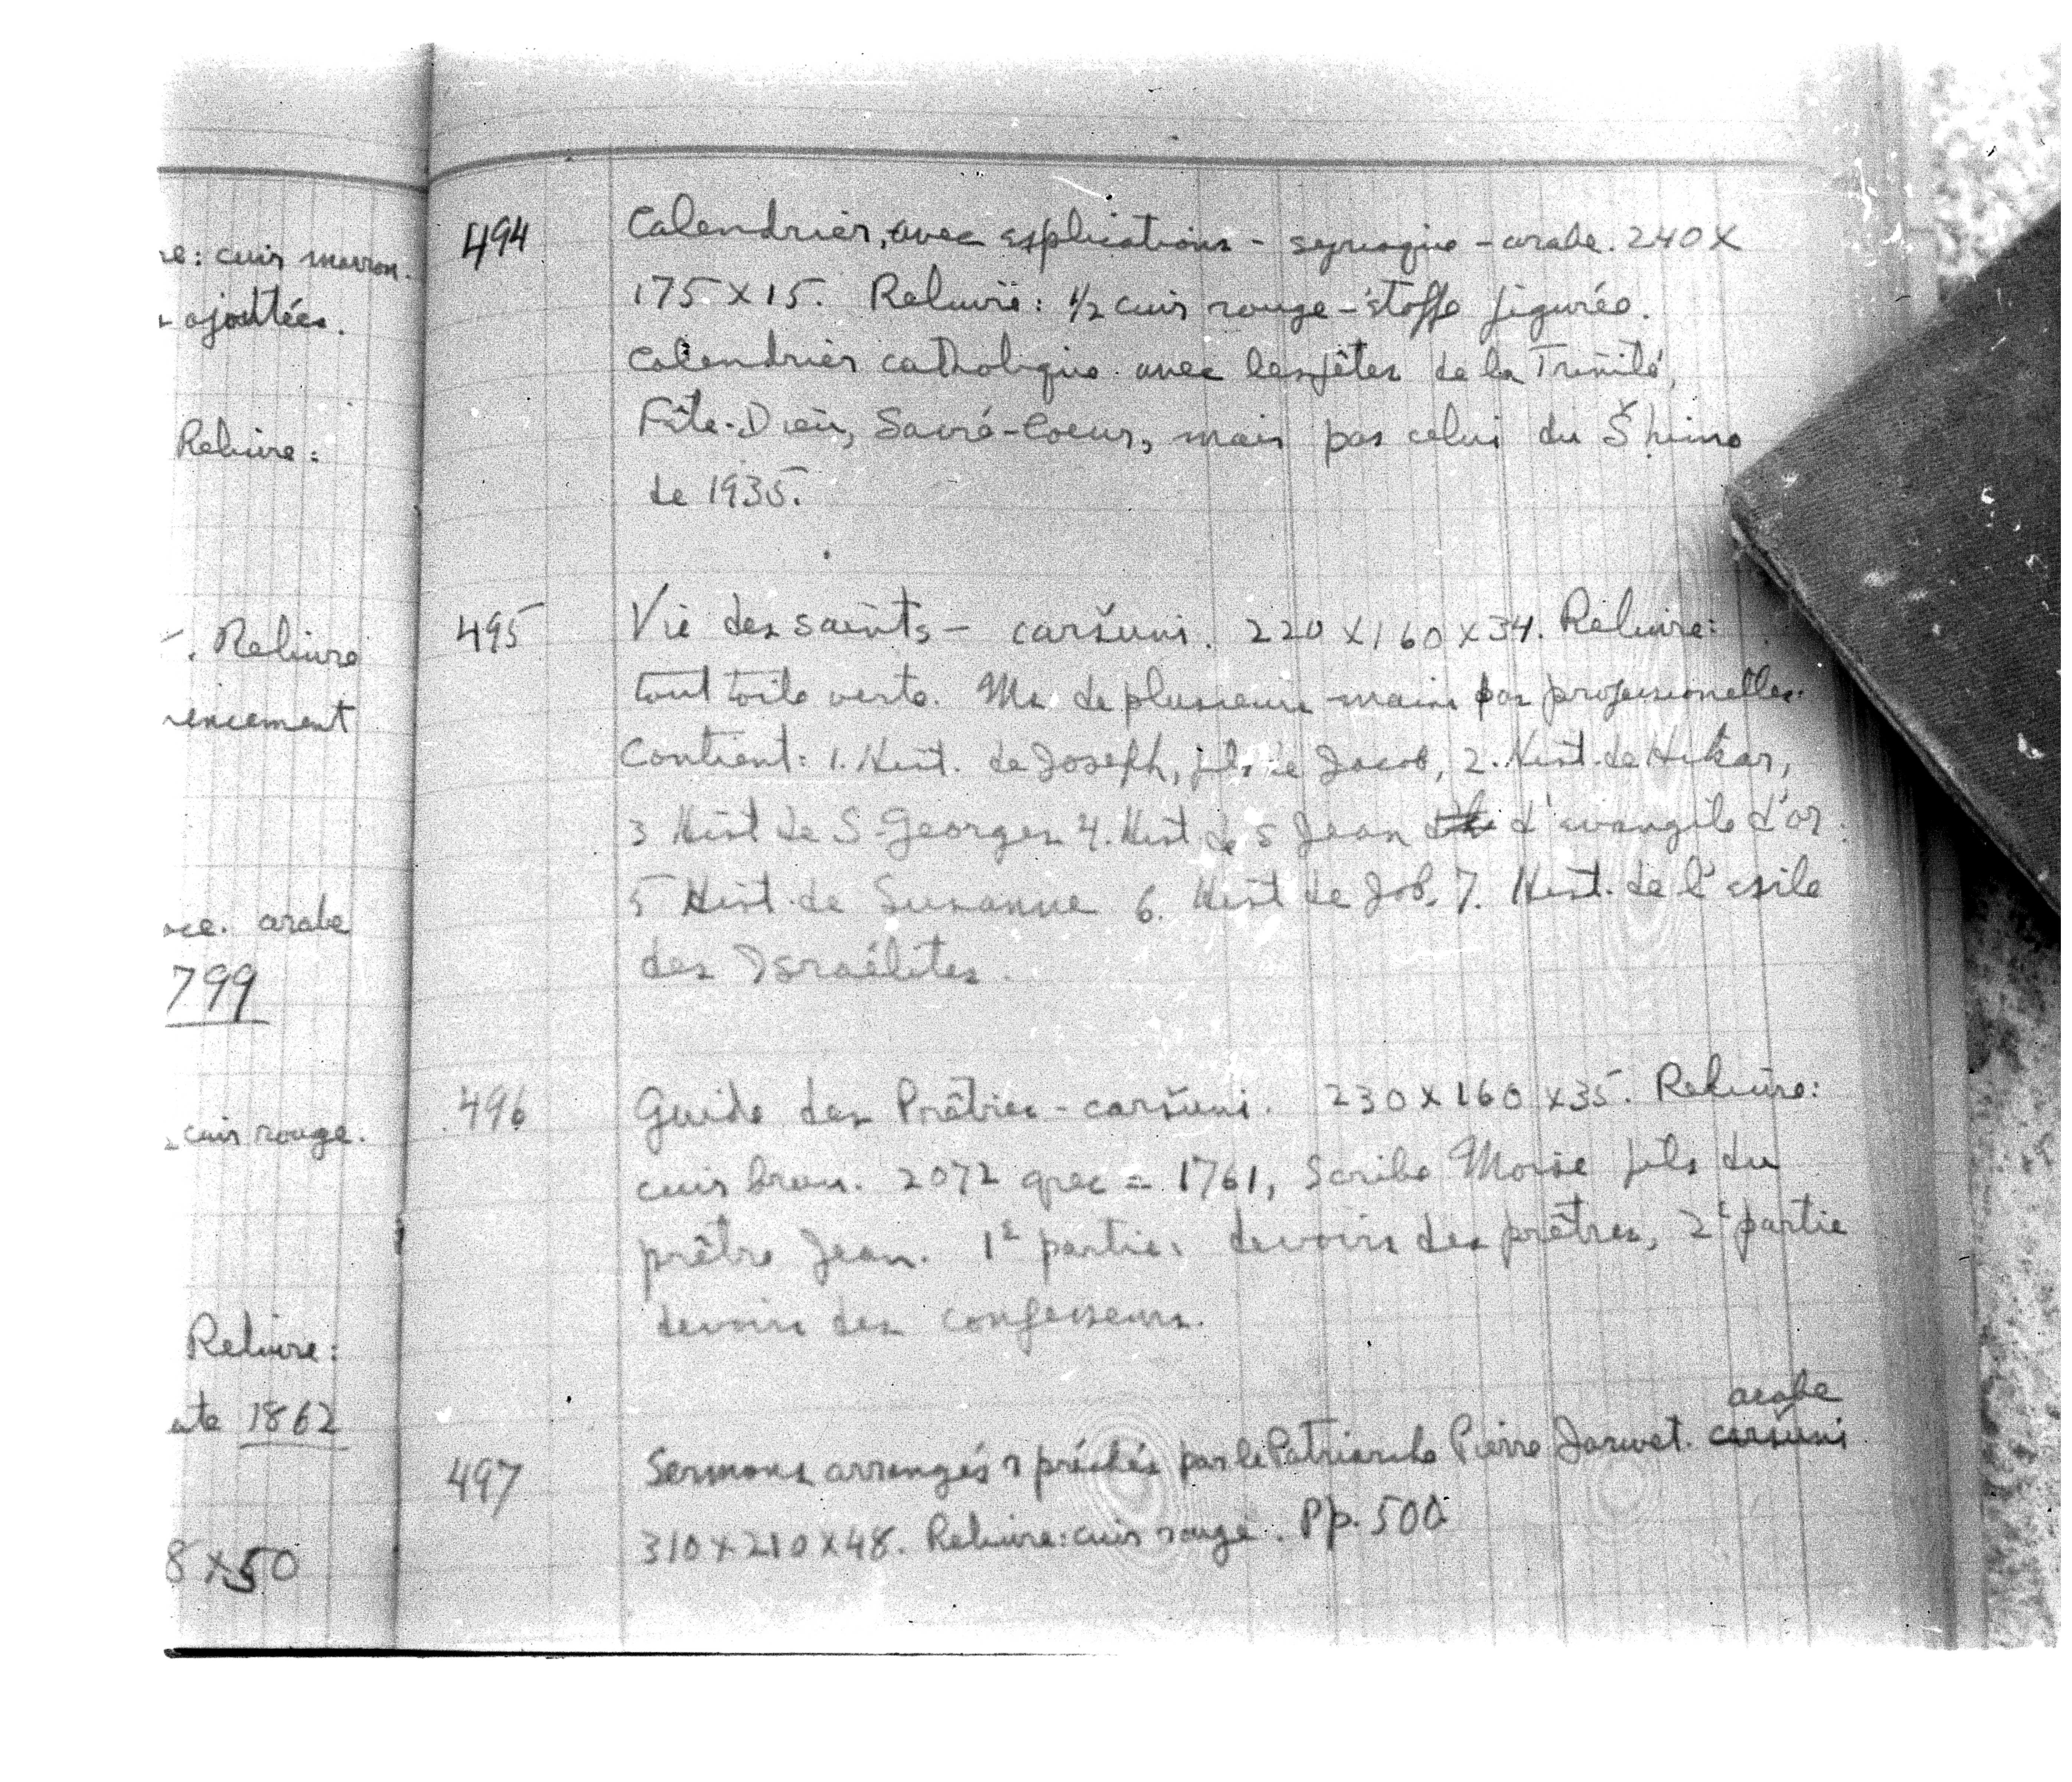 re: cuir marron.
ajoutées.
Reliure:
Reliure
encement
arabe
799
cuir rouge.
Reliure:
1862
8 x 50
494 Calendrier, avec esplications - syriaque - arabe. 240 x
175 x 15. Reliure: 1/2 cuir rouge - étoffe figurée.
Calendrier catholique avec les fêtes de la Trinité,
Fête-Dieu, Sacré-Coeur, mais pas celui du Šhimo
de 1935.
495 Vie des saints - caršuni. 220 x 160 x 34. Reliure:
tout toile verte. Ms de plusieurs mains pas professionelles.
Contient: 1. Hist. de Joseph, fils de Jacob, 2. Hist. de Hikar,
3 Hist de S. Georges 4. Hist de S Jean d'evangile d'or.
5 Hist. de Susanne 6. Hist de Job, 7. Hist. de l'esile
des Israélites.
496 Guide des Prêtres - caršuni. 230 x 160 x 35. Reliure:
cuir brun. 2072 grec = 1761, Scribe Moise fils du
prêtre Jean. 1e partie: devoirs des prêtres, 2e partie
devoirs des confesseurs.
arabe
497 Sermons arrangés & préchés par le Patriarche Pierre Jarwet. caršuni
310 x 210 x 48. Reliure: cuir rouge. Pp. 500